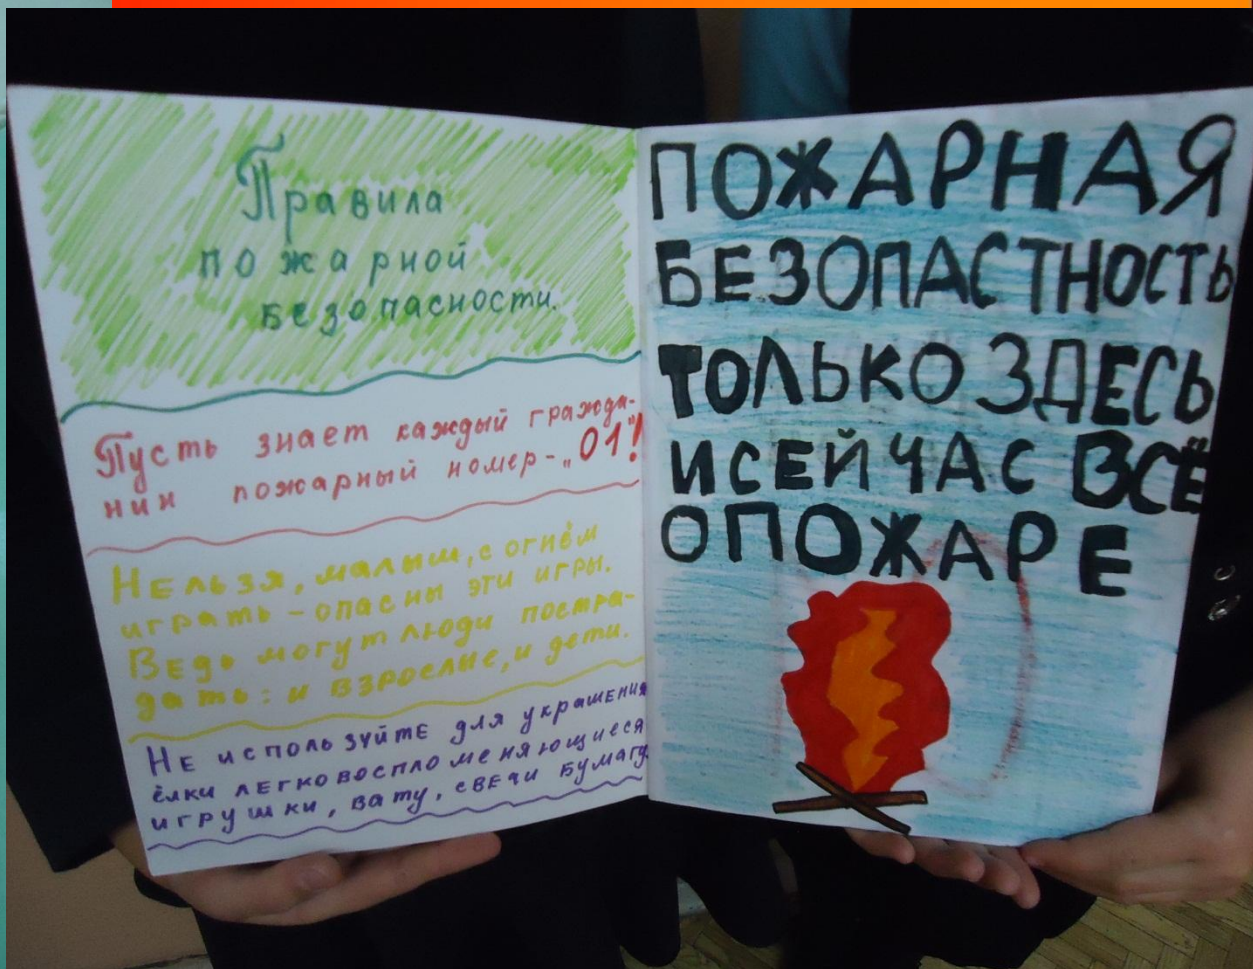 Правила
пожарной
безопасности.
Пусть знает каждый гражда-
нин пожарный номер-„01"!
Нельзя, малыш, с огнём
играть - опасны эти игры.
Ведь могут люди постра-
дать: и взрослые, и дети.
Не используйте для украшения
ёлки легковоспломеняющиеся
игрушки, вату, свечи бумагу.
ПОЖАРНАЯ
БЕЗОПАСТНОСТЬ
ТОЛЬКО ЗДЕСЬ
И СЕЙЧАС ВСЁ
О ПОЖАРЕ